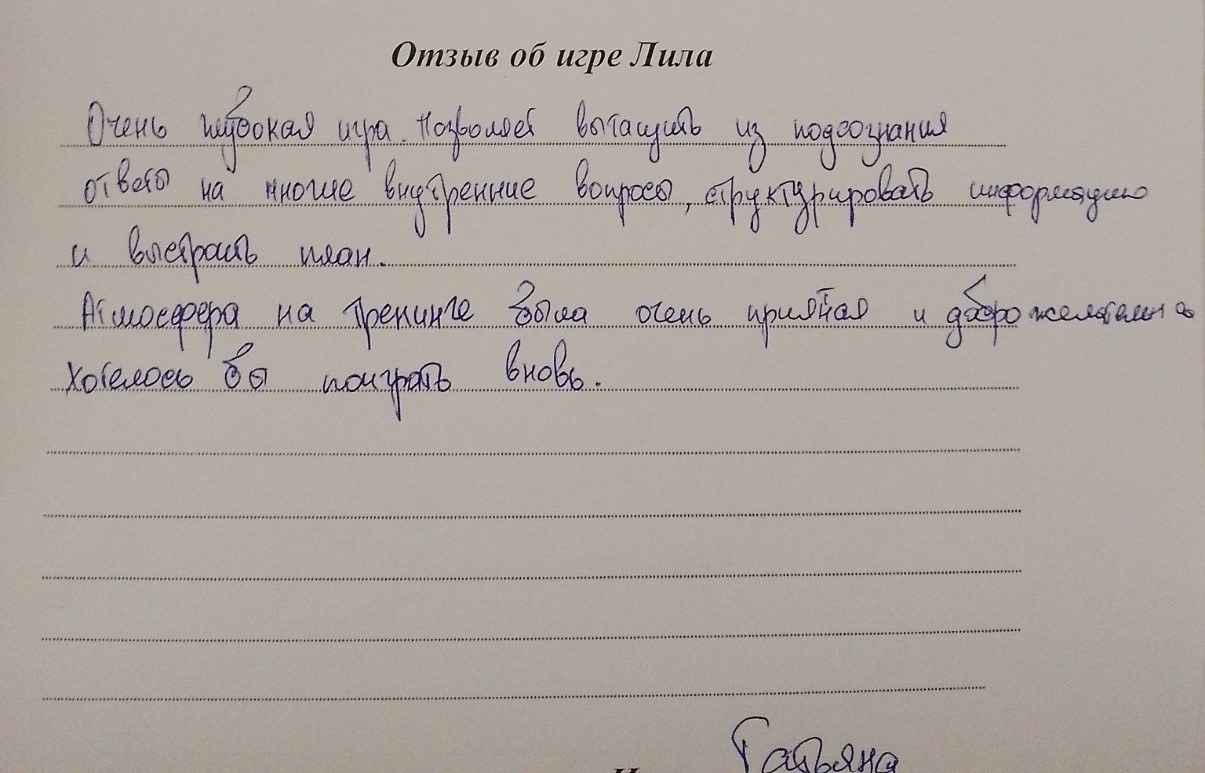 Отзыв об игре Лила
Очень глубокая игра. Позволяет вытащить из подсознания
ответы на многие внутренние вопросы, структурировать информацию
и выстроить план.
Атмосфера на тренинге была очень приятная и доброжелательна
Хотелось бы поиграть вновь.
Татьяна